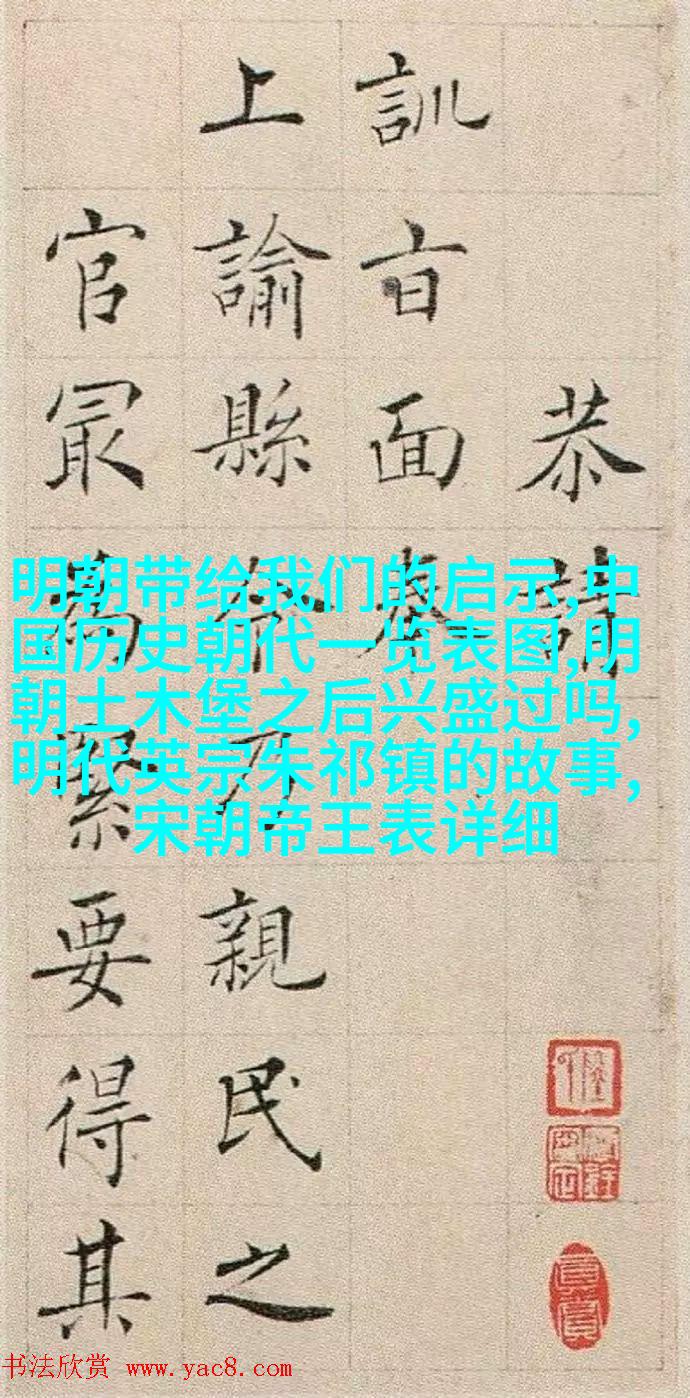 恭請
訓旨面奉
上諭縣令乃親民之
官最為緊要得其
明朝带给我们的启示,中
国历史朝代一览表图,明
朝土木堡之后兴盛过吗,
明代英宗朱祁镇的故事,
宋朝帝王表详细
书法欣赏 www.yac8.com